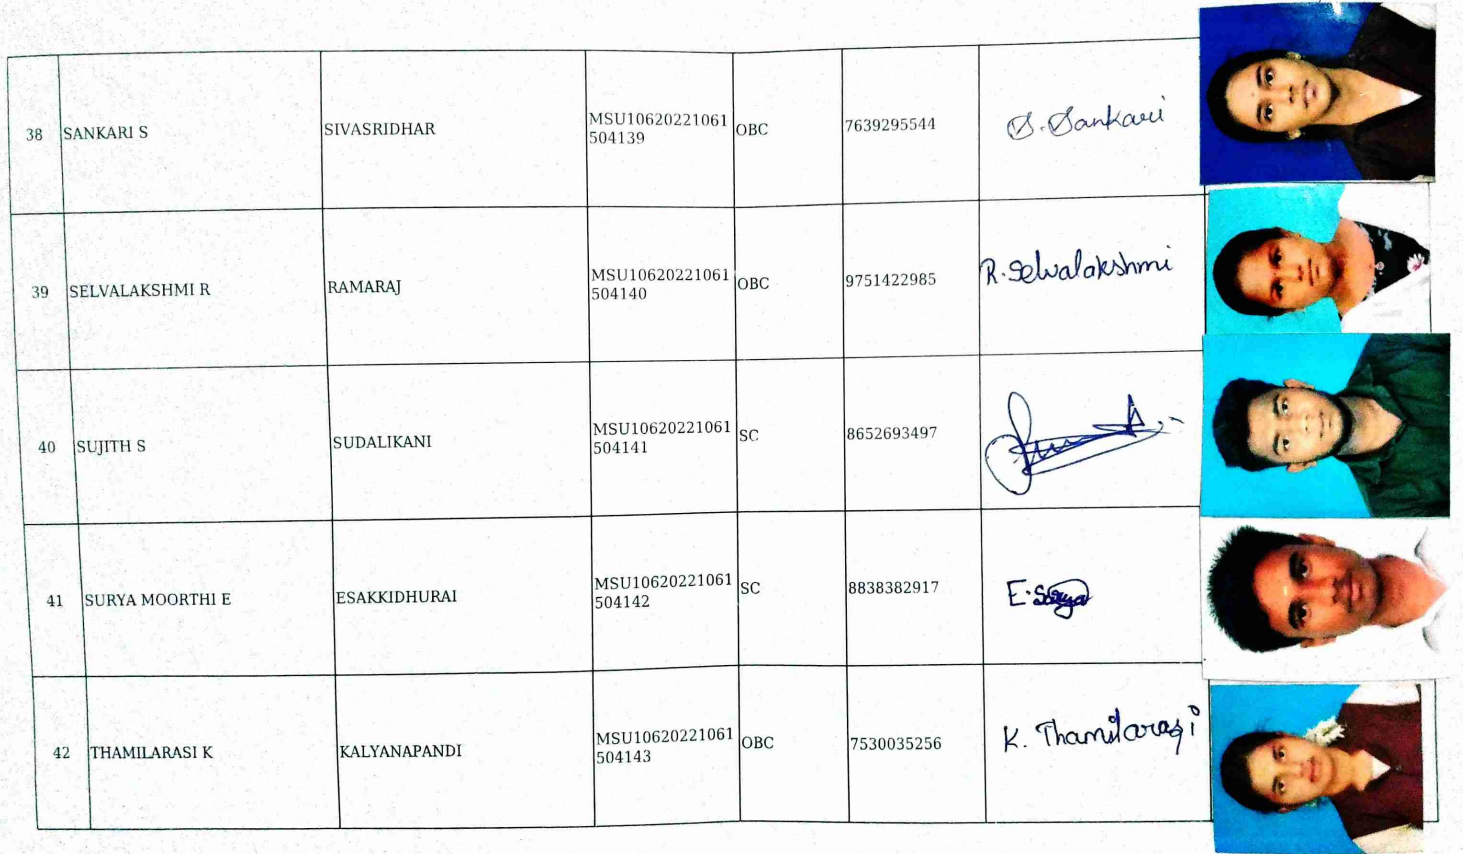 38 SANKARI S SIVASRIDHAR MSU10620221061 OBC 7639295544 S. Sankari
504139
39 SELVALAKSHMI R RAMARAJ MSU10620221061 OBC 9751422985 R. Selvalakshmi
504140
40 SUJITH S SUDALIKANI MSU10620221061 SC 8652693497
504141
41 SURYA MOORTHI E ESAKKIDHURAI MSU10620221061 SC 8838382917 E. Surya
504142
42 THAMILARASI K KALYANAPANDI MSU10620221061 OBC 7530035256 K. Thamilarasi
504143